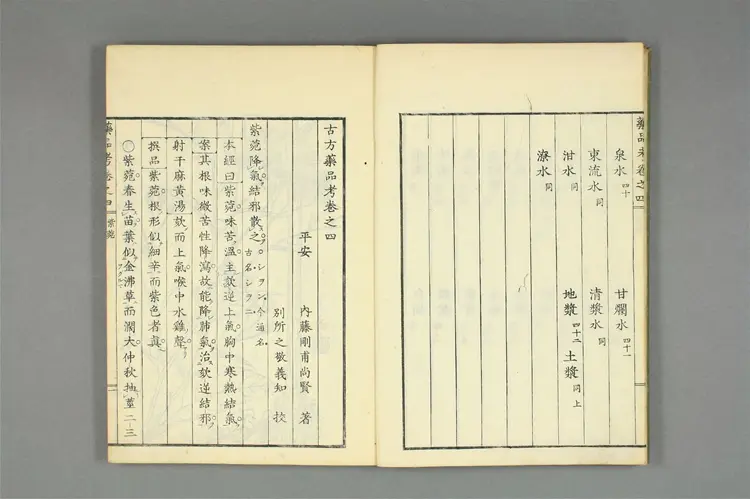 藥品考卷之四
泉水 四十
甘爛水 四十一
東流水 同
清漿水 同
泔水 同
地漿 四十二
土漿 同上
潦水 同
古方藥品考卷之四
平安 內藤剛甫尚賢 著
別所之敬義知 校
紫菀降氣結邪散之 ○シヲン今通名
古名シヲニ
本經曰紫菀味苦溫主欬逆上氣胸中寒熱結氣
案其根味微苦性降瀉故能降肺氣治欬逆結邪
射干麻黃湯欬而上氣喉中水雞聲
撰品紫菀根形似細辛而紫色者眞
○紫菀春生苗葉似金沸草而濶大仲秋抽莖二三
藥品考卷之四 紫菀 一